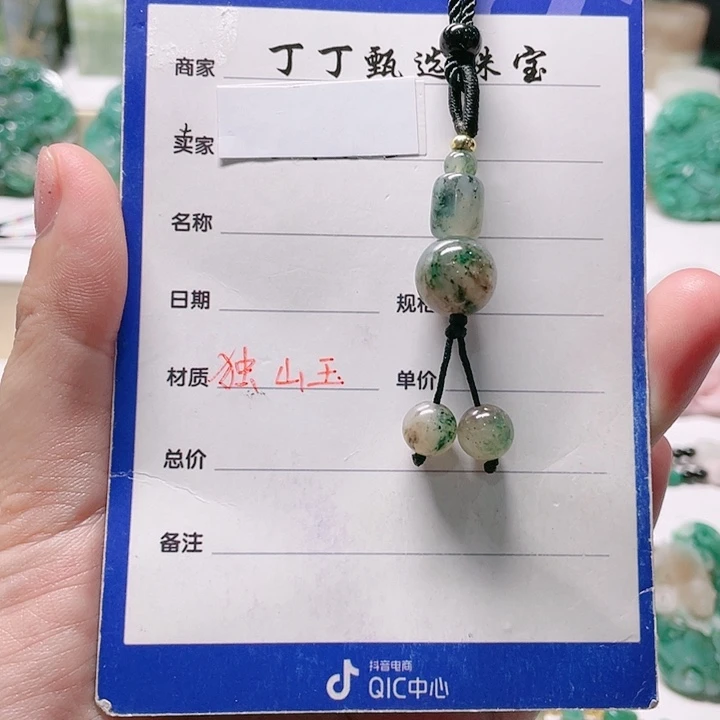 商家 丁丁甄选珠宝
卖家
名称
日期 规格
材质 独山玉 单价
总价
备注
抖音电商
QIC中心